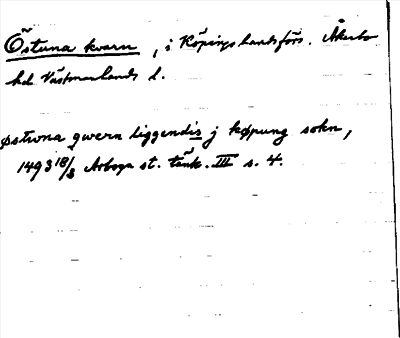 Östuna kvarn, i Köpings landsförs. Åkerbo
hd Västmanlands l.
østwna qwern liggendis j køpung sokn,
1493 18/3 Arboga st. tänk. III s. 4.